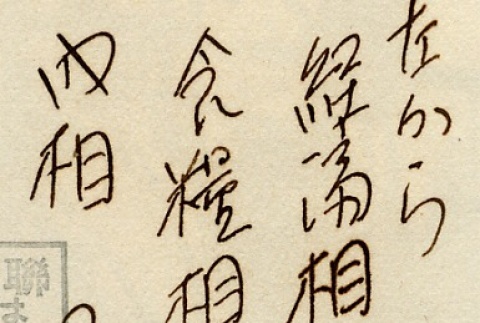 左から
経済相
食糧相
内相